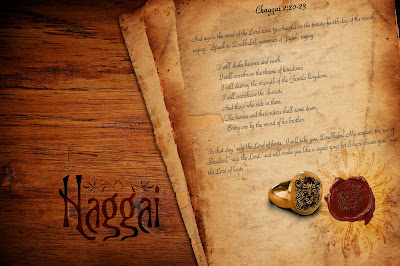 Haggai 2:20-23
And again the word of the Lord came to Haggai on the twenty-fourth day of the month,
saying, "Speak to Zerubbabel, governor of Judah, saying:
'I will shake heaven and earth.
I will overthrow the throne of kingdoms;
I will destroy the strength of the Gentile kingdoms.
I will overthrow the chariots
And those who ride in them;
The horses and their riders shall come down,
Every one by the sword of his brother.
'In that day,' says the Lord of hosts, 'I will take you, Zerubbabel My servant, the son of
Shealtiel,' says the Lord, 'and will make you like a signet ring; for I have chosen you,' says
the Lord of hosts."
Haggai